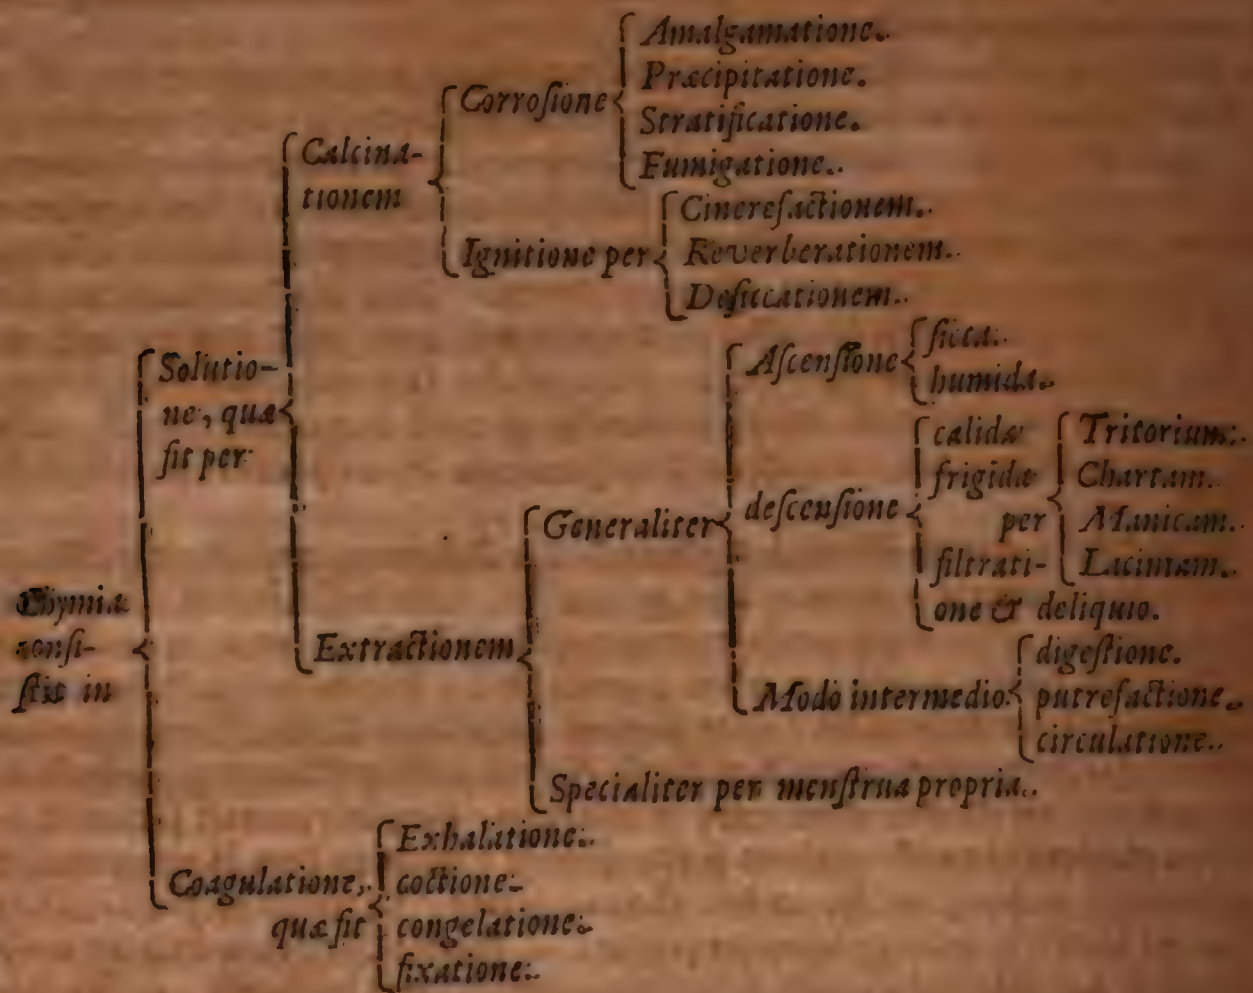 Chymia
consi-
stit in
Solutio-
ne, quæ
fit per
Calcina-
tionem
Corrosione
Amalgamatione.
Præcipitatione.
Stratificatione.
Fumigatione.
Ignitione per
Cinerefactionem.
Reverberationem.
Desiccationem.
Extractionem
Generaliter
Ascensione
sicca.
humida.
descensione
calida
frigida
per
filtrati-
one & deliquio.
Tritorium.
Chartam.
Manicam.
Laciniam.
Modo intermedio
digestione.
putrefactione.
circulatione.
Specialiter per menstrua propria.
Coagulatione,
quæ fit
Exhalatione.
coctione.
congelatione.
fixatione.